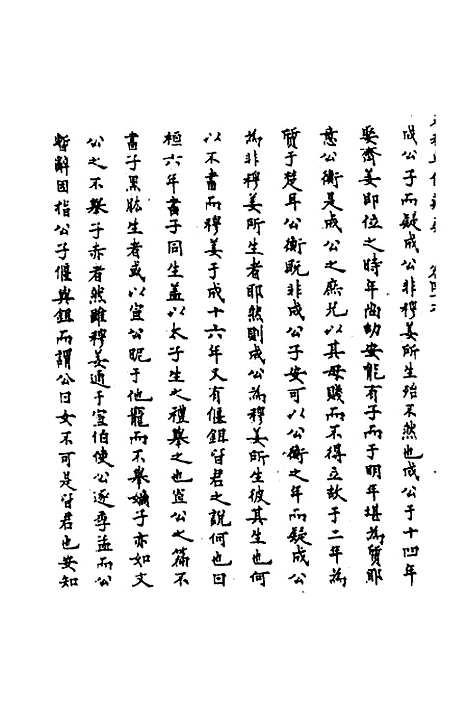 成公子而疑成公非穆姜所生殆不然也成公于十四年
娶齊姜即位之時年尚幼安能有子而于明年堪為質耶
意公衡是成公之庶兄以其母賤而不得立歟于二年為
質于楚耳公衡既非成公子安可以公衡之年而疑成公
為非穆姜所生者耶然則成公為穆姜所生彼其生也何
以不書而穆姜于成十六年又有偃鉏皆君之說何也曰
桓六年書子同生蓋以太子生之禮舉之也宣公之篇不
書子黑肱生者或以宣公昵于他寵而不舉嫡子亦如文
公之不舉子赤者然雖穆姜通于宣伯使公逐季孟而公
暫辭因指公子偃與鉏而謂公曰女不可是皆君也安知